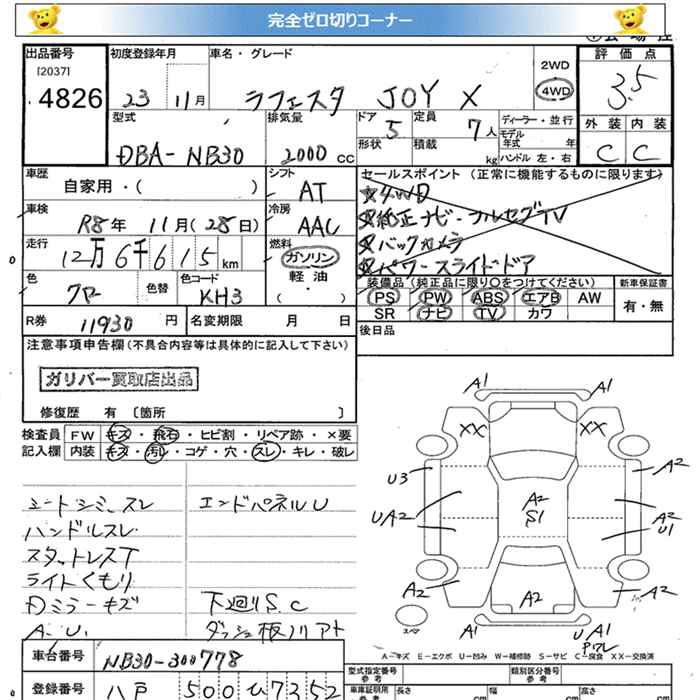 完全ゼロ切りコーナー
出品番号 初度登録年月 車名・グレード 評価点
[2037]
4826 23 11月 ラフェスタ JOY X 2WD 4WD 3.5
型式 排気量 ドア 定員 ディーラー・並行 外装 内装
DBA-NB30 2000cc 5 7人 モデル年式 年 C C
形状 積載 kg ハンドル 左・右
車歴 シフト セールスポイント (正常に機能するものに限ります)
自家用・( ) AT ☆4WD
車検 冷房 ☆純正ナビ・フルセグTV
R8年 11月(28日) AAC ☆バックカメラ
走行 燃料 ☆パワースライドドア
12万6千615km ガソリン
軽油・( )
色 色替 色コード 装備品(純正品に限り○をつけてください) 新車保証書
クロ KH3 PS PW ABS エアB AW 有・無
SR ナビ TV カワ
R券 11930円 名変期限 月 日 後日品
注意事項申告欄(不具合内容等は具体的に記入して下さい)
ガリバー買取店出品
修復歴 有 〔箇所 〕
検査員 FW キズ・飛石・ヒビ割・リペア跡・×要
記入欄 内装 キズ・汚れ・コゲ・穴・スレ・キレ・破レ
A1 A1
XX XX
U3 A2
UA2 A2 S1 A2 U1
A2 A2 A2
U A1
スペア
シートシミ、スレ エンドパネルU
ハンドルスレ
スタットレスT
ライトくもり
Dミラーキズ 下廻りS.C
A.U.
A-キズ E-エクボ U-凹み W-補修跡 S-サビ C-腐食 XX-交換済
車台番号 NB30-300778
型式指定番号 参考 類別区分番号 参考
登録番号 八戸 500 ひ 7352
車庫証明用 参考 長さ cm 幅 cm 高さ cm